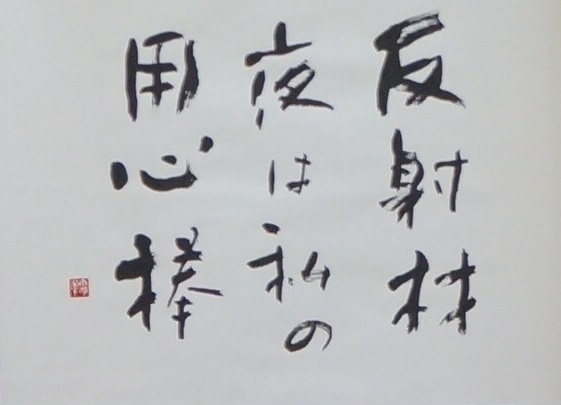 反射材
夜は私の
用心棒